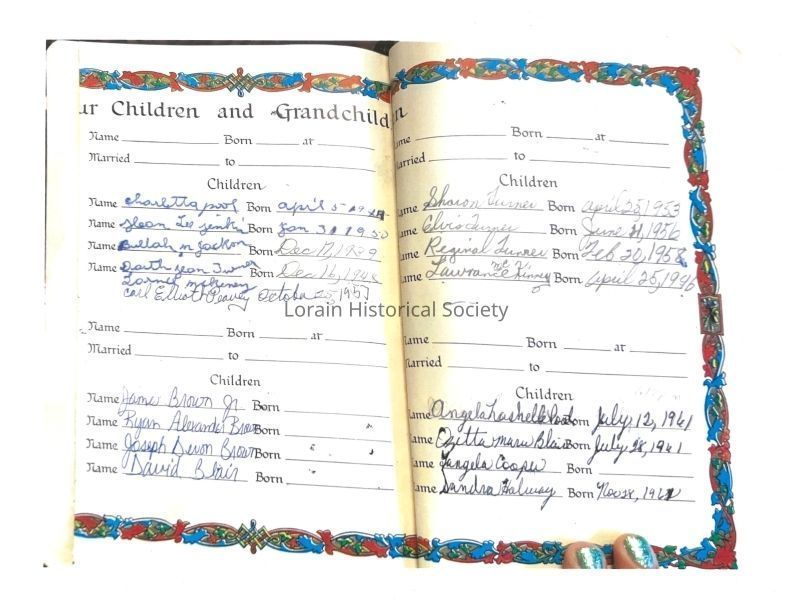 ur Children and Grandchild
Name Born at
Married to
Children
Name Charletta pool Born april 5-19
Name Jean Lee Born Jan 3 1950
Name Beulah m jackson Born Dec 17, 1939
Name jean Turner Born Dec 16, 194
Carl Elliott Peavey October 25, 1957
Name Born at
Married to
Children
Name James Brown Jr Born
Name Ryan Alexander Brown Born
Name Joseph Devon Brown Born
Name David Blair Born
n
ame Born at
arried to
Children
ame Sharon Turner Born april 25, 1953
ame Elvis Turner Born June 1956
ame Reginal Turner Born Feb 20, 1958
ame Lawrance Mc Kinney Born April 25, 19
Lorain Historical Society
ame Born at
arried to
Children
ame Angela Lashelle Born July 12, 1961
ame Ozetta maria Blair Born July 28, 1961
ame Tangela Cooper Born
ame Sandra Halway Born Nov 28, 19